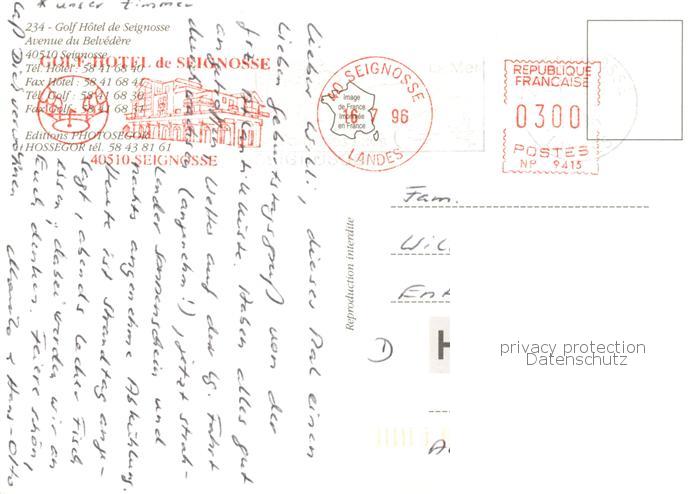 * unser Zimmer
234 - Golf Hôtel de Seignosse
Avenue du Belvédère
40510 Seignosse
Tél. Hotel : 58 41 68 40
Fax Hotel : 58 41 68
Tél. Golf : 58 41 68 30
Fax Golf : 58 41 68 31
Editions PHOTOSEGOR
HOSSEGOR tél. 58 43 81 61
GOLF HOTEL de SEIGNOSSE
40510 SEIGNOSSE
40 SEIGNOSSE
16 7 96
LANDES
Image
de France
Imprimée
en France
REPUBLIQUE
FRANCAISE
0300
POSTES
NP 9413
Lieber Willi, dieses Mal einen
lieben Geburtstagsgruß von der
frz. Atlantikküste. Haben alles gut
angetroffen, Wetter auf der Fahrt
(angenehm!), jetzt strah-
lender Sonnenschein und
nachts angenehme Abkühlung.
Heute ist Strandtag ange-
sagt, abends lecker Fisch
essen; dabei werden wir an
Euch denken. Feiere schön,
Mareike & Hans-Otto
Reproduction interdite
Fam.
privacy protection
Datenschutz